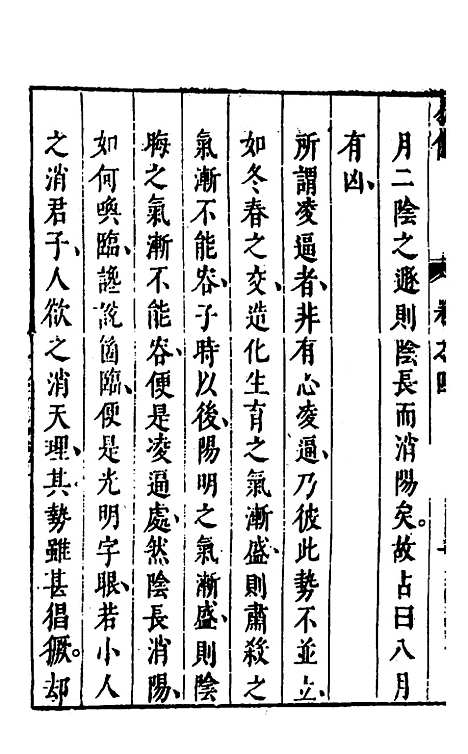 卷之四
月二陰之遯則陰長而消陽矣。故占曰八月
有凶、
所謂凌逼者、非有心凌逼、乃彼此勢不並立、
如冬春之交、造化生育之氣漸盛、則肅殺之
氣漸不能容、子時以後、陽明之氣漸盛、則陰
晦之氣漸不能容、便是凌逼處、然陰長消陽、
如何喚臨、纔說箇臨、便是光明字眼、若小人
之消君子、人欲之消天理、其勢雖甚猖獗。却